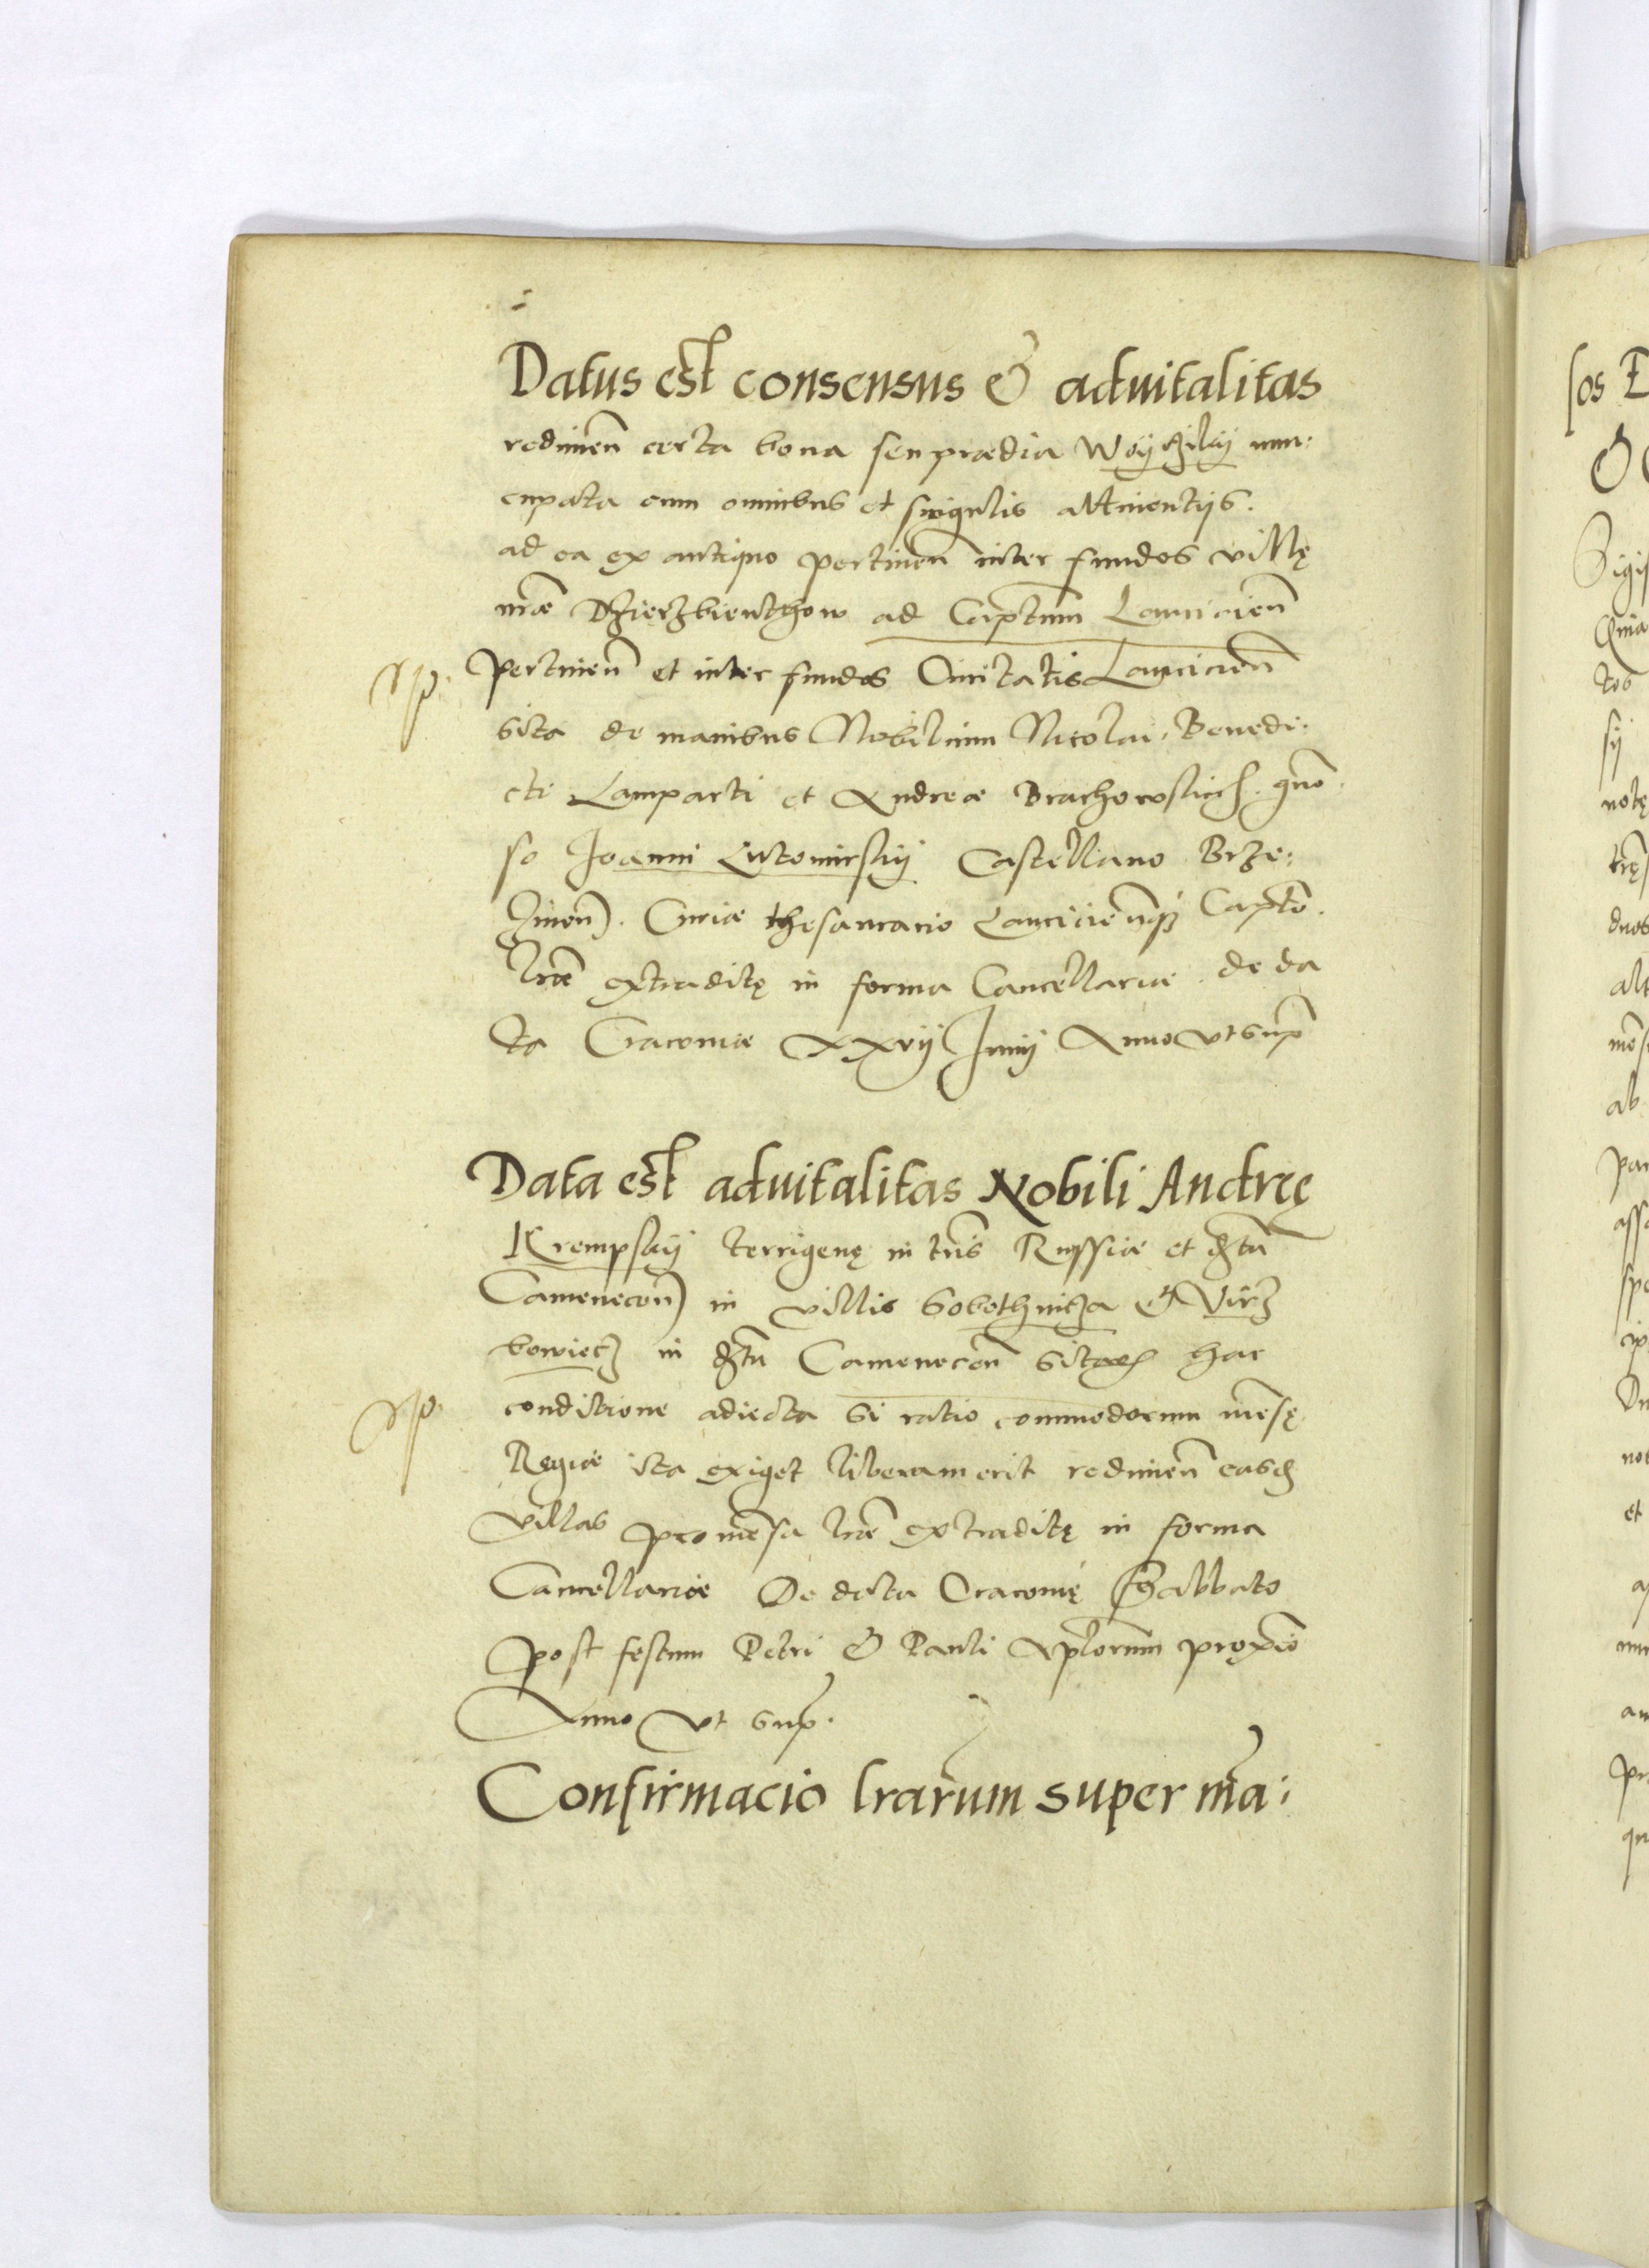 Datus est consensus & aduitalitas
redimen̄ certa bona seu prædia Woyczikij nun:
cupata cum omnibus et singulis attinentijs.
ad ea ex antiquo pertinen̄ inter fundos villę
nr̄æ Dzierzbienthow ad Captum̄ Lancicien̄
pertinen̄ et inter fundos Ciuitatis Lancicien̄
sita de manibus Nobilium Nicolai, Benedi:
cti Lamparti et Andreæ Brachowskich. gn̄o
so Joanni Lutomirskij Castellano Brze:
zinen̄. Curiæ thesaurario Lancicien̄q; Capt̄o.
Lr̄æ extraditę in forma Cancellariæ de da
ta Cracouiæ xxvij Junij Anno vt sup̄
Data est aduitalitas Nobili Andreę
Krempskij terrigenę in tr̄is Russiæ et dt̄u
Camenecen̄ in villis Sobothnicza & Virz
bowiecz in dt̄u Camenecen̄ sitis hac
conditione adiecta si ratio commodorum mēsę
Regiæ ita exiget liberam erit redimen̄ easd̄
villas pro mēsa lr̄æ extraditę in forma
Cancellariæ De data Cracouię Sabbato
post festum Petri & Pauli Ap̄lorum pręxīo
Anno vt sup̄.
Confirmacio lrārum super mā: